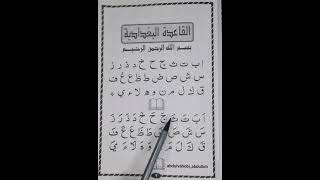 القاعدة البغدادية
بسم الله الرحمن الرحيم
ا ب ت ث ج ح خ د ذ ر ز
س ش ص ض ط ظ ع غ ف
ق ك ل م ن و ه لا ء ي
اَ بَ تَ ثَ جَ حَ خَ دَ ذَ رَ زَ
سَ شَ صَ ضَ طَ ظَ عَ غَ فَ
قَ كَ لَ مَ نَ وَ هَ لَا ءَ يَ
abdulvahobi_abdulloh